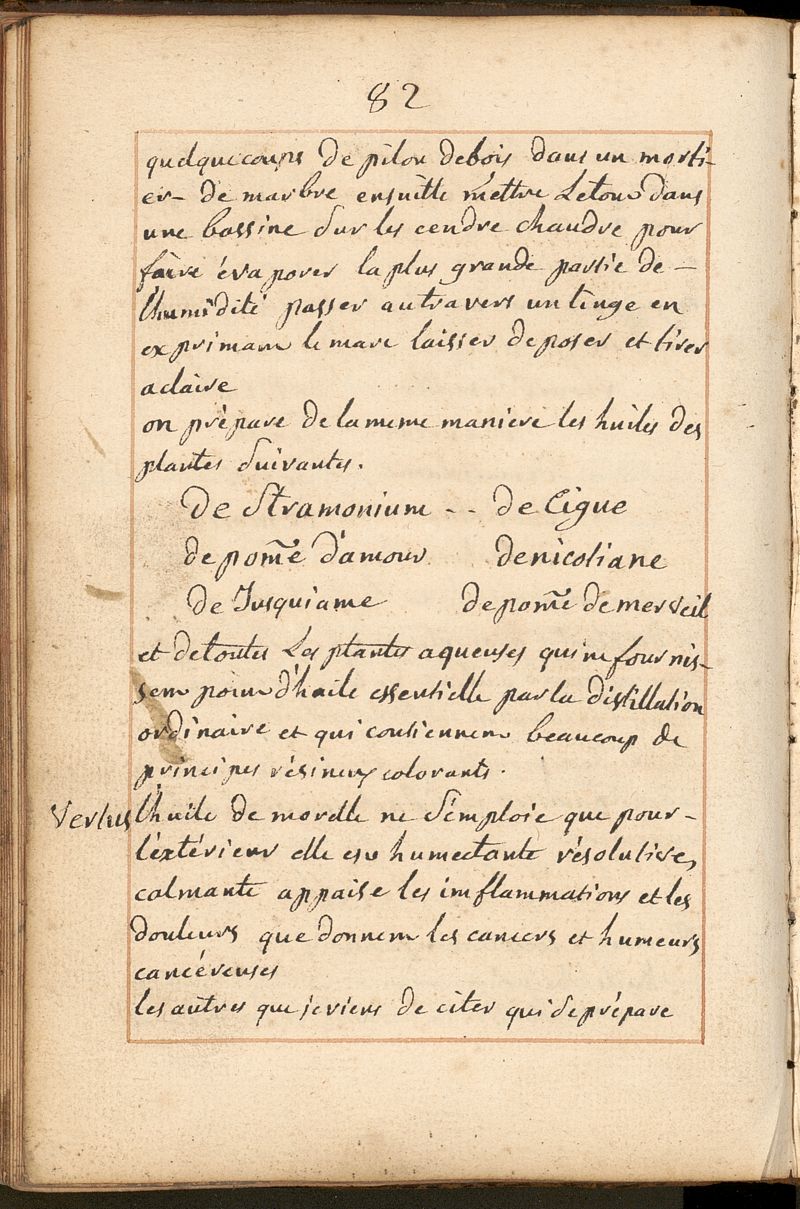 82
quelque coups de pilon debois dans un morti-
er- de marbre ensuitte mettre Letout dans
une bassine sur les cendre chaudre pour
faire évaporer la plus grande partie de -
l'humidité passer autravers un linge en
exprimant le marc laisser deposer et tirer
aclaire
on prépare de la meme maniere les huiles des
plantes suivantes.
de Stramonium - - de Cigue
de pom̃e d'amour denicotiane
de Jusquiame de pom̃e de merveil
et detoutes Les plantes aqueuses qui ne fournis-
sent point d'huile essentielle par la distillation
ordinaire et qui contiennent beaucoup de
principes résineux colorants.
Vertus l'huile de morelle ne s'emploie que pour -
l'extérieur elle est humectante résolutive,
calmante appaise les imflammations et les
douleurs que donnent les cancers et humeurs
cancéreuses
les autres que je viens de citer qui se prépare